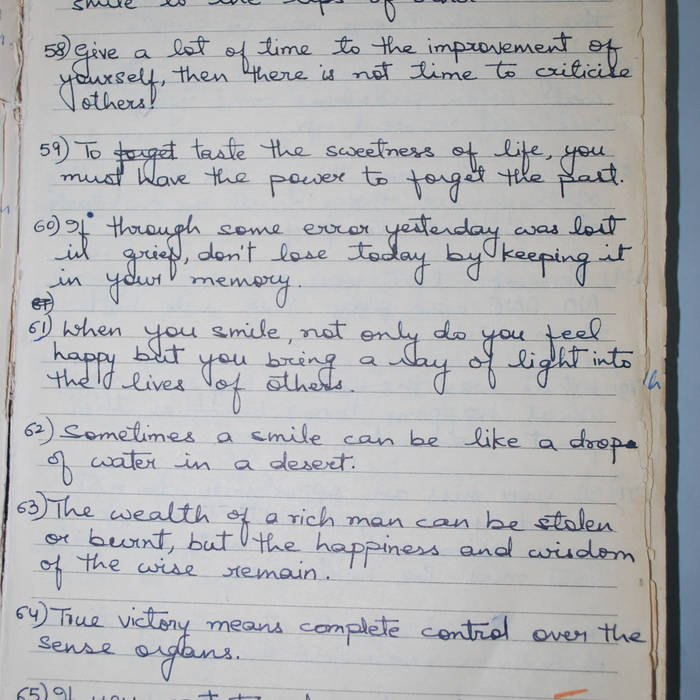 smile to the lips of
58) Give a lot of time to the improvement of
yourself, then there is not time to criticise
others!
59) To forget taste the sweetness of life, you
must have the power to forget the past.
60) If through some error yesterday was lost
in grief, don't lose today by keeping it
in your memory.
61) When you smile, not only do you feel
happy but you bring a ray of light into
the lives of others.
62) Sometimes a smile can be like a drop
of water in a desert.
63) The wealth of a rich man can be stolen
or burnt, but the happiness and wisdom
of the wise remain.
64) True victory means complete control over the
sense organs.
65) If you